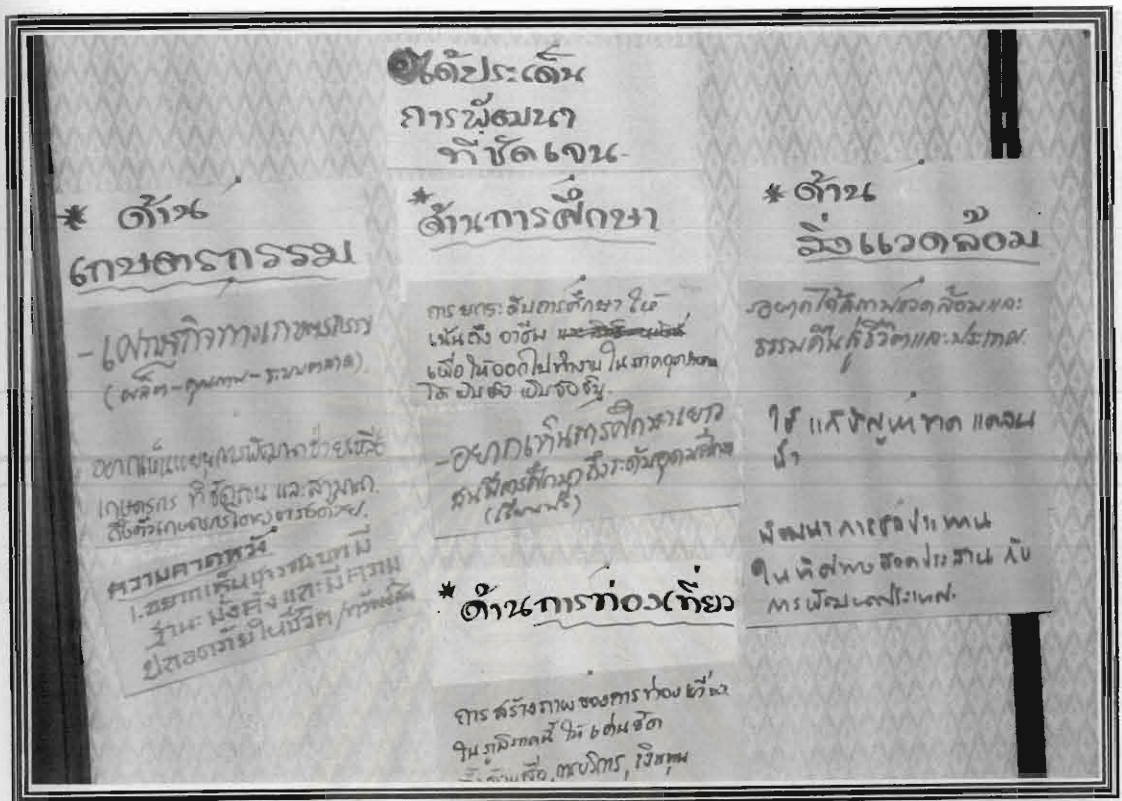 ได้ประเด็น
การพัฒนา
ที่ชัดเจน
* ด้าน
เกษตรกรรม
- เศรษฐกิจทางเกษตรกรรม
(ผลิต - คุณภาพ - ระบบตลาด)
อยากเห็นแผนการพัฒนาช่วยเหลือ
เกษตรกร ที่ชัดเจน และสามารถ
ถึงตัวเกษตรกรโดย
ความคาดหวัง
1. อยากเห็นชาวชนบทมี
ฐานะมั่งคั่งและมีความ
ปลอดภัยในชีวิต/ทรัพย์สิน
* ด้านการศึกษา
การยกระดับการศึกษา ให้
เน้นถึง อาชีพ
เพื่อให้ออกไปทำงานใน
ได้
- อยากเห็นการศึกษาเยาว
ชนมีการศึกษาถึงระดับอุดมศึกษา
(เรียนฟรี)
* ด้านการท่องเที่ยว
การสร้างภาพของการท่องเที่ยว
ในภูมิภาคนี้ ให้เด่นชัด
การบริการ, เงินทุน
* ด้าน
สิ่งแวดล้อม
อยากให้สภาพแวดล้อมและ
ธรรมคืนสู่ชีวิตและประเทศ
ให้ แก้ปัญหาขาดแคลน
น้ำ
พัฒนาการชลประทาน
ในทิศทางสอดประสานกับ
การพัฒนาประเทศ